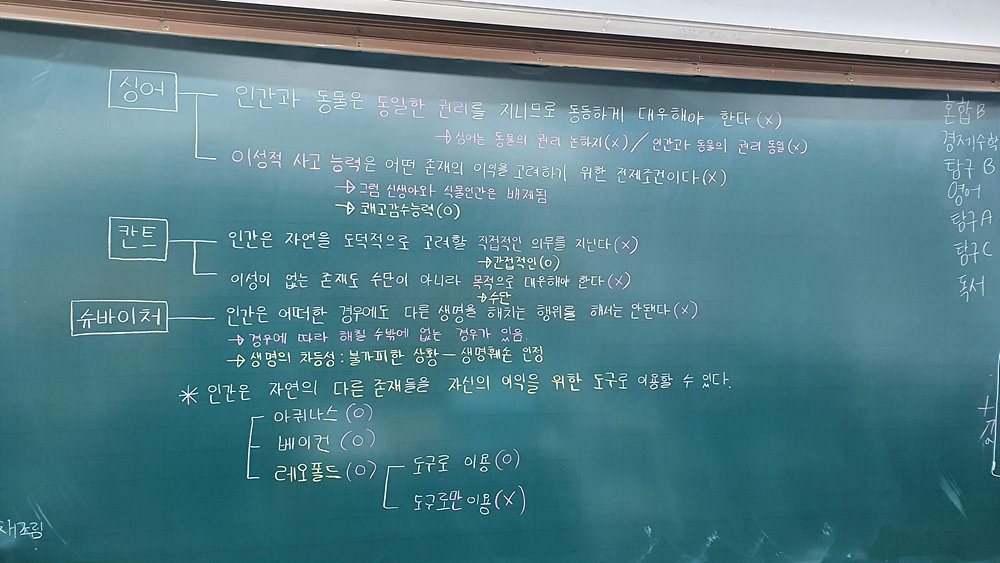 싱어
인간과 동물은 동일한 권리를 지니므로 동등하게 대우해야 한다 (X)
→ 싱어는 동물의 권리 논하지(X) / 인간과 동물의 권리 동일(X)
이성적 사고 능력은 어떤 존재의 이익을 고려하기 위한 전제조건이다 (X)
→ 그럼 신생아와 식물인간은 배제됨
→ 쾌고감수능력(O)
칸트
인간은 자연을 도덕적으로 고려할 직접적인 의무를 지닌다 (X)
→ 간접적인(O)
이성이 없는 존재도 수단이 아니라 목적으로 대우해야 한다 (X)
→ 수단
슈바이처
인간은 어떠한 경우에도 다른 생명을 해치는 행위를 해서는 안됀다 (X)
→ 경우에 따라 해칠 수밖에 없는 경우가 있음.
→ 생명의 차등성 : 불가피한 상황 — 생명훼손 인정
* 인간은 자연의 다른 존재들을 자신의 이익을 위한 도구로 이용할 수 있다.
아퀴나스 (O)
베이컨 (O)
레오폴드 (O)
도구로 이용(O)
도구로만 이용(X)
혼합 B
경제수학
탐구 B
영어
탐구 A
탐구 C
독서